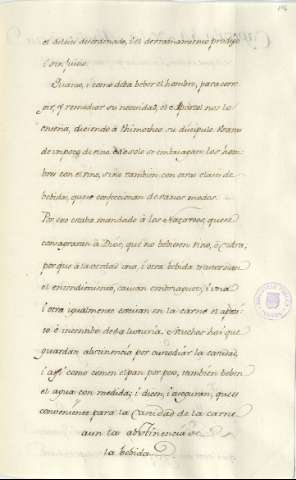 el deleite desordenado, i el derramamiento prodigo
i sin juicio.
Quanto, i como deba beber el hombre, para corre
gir, y remediar su necesidad, el Apostol nos lo
enseña, diciendo à Thimotheo su discipulo: Usaras
de un poco de vino. No solo se embriagan los hom
bres con el vino, sino tambien con otras clases de
bebidas, que se confeccionan de varios modos.
Por eso estaba mandado à los Nazareos, que se
consagraban à Dios, que no bebiesen vino, ò sidra,
por que à la verdad una, i otra bebida trastornan
el entendimiento, causan embriaguez, i una
i otra igualmente excitan en la carne el apeti
to ò incentivo de la luxuria. Muchos hai que
guardan abstinencia por custodiar la castidad,
i assi como comen el pan por peso, tambien beben
el agua con medida; i dicen, i aseguran, que es
conveniente para la Castidad de la carne
aun la abstinencia de
la bebida.